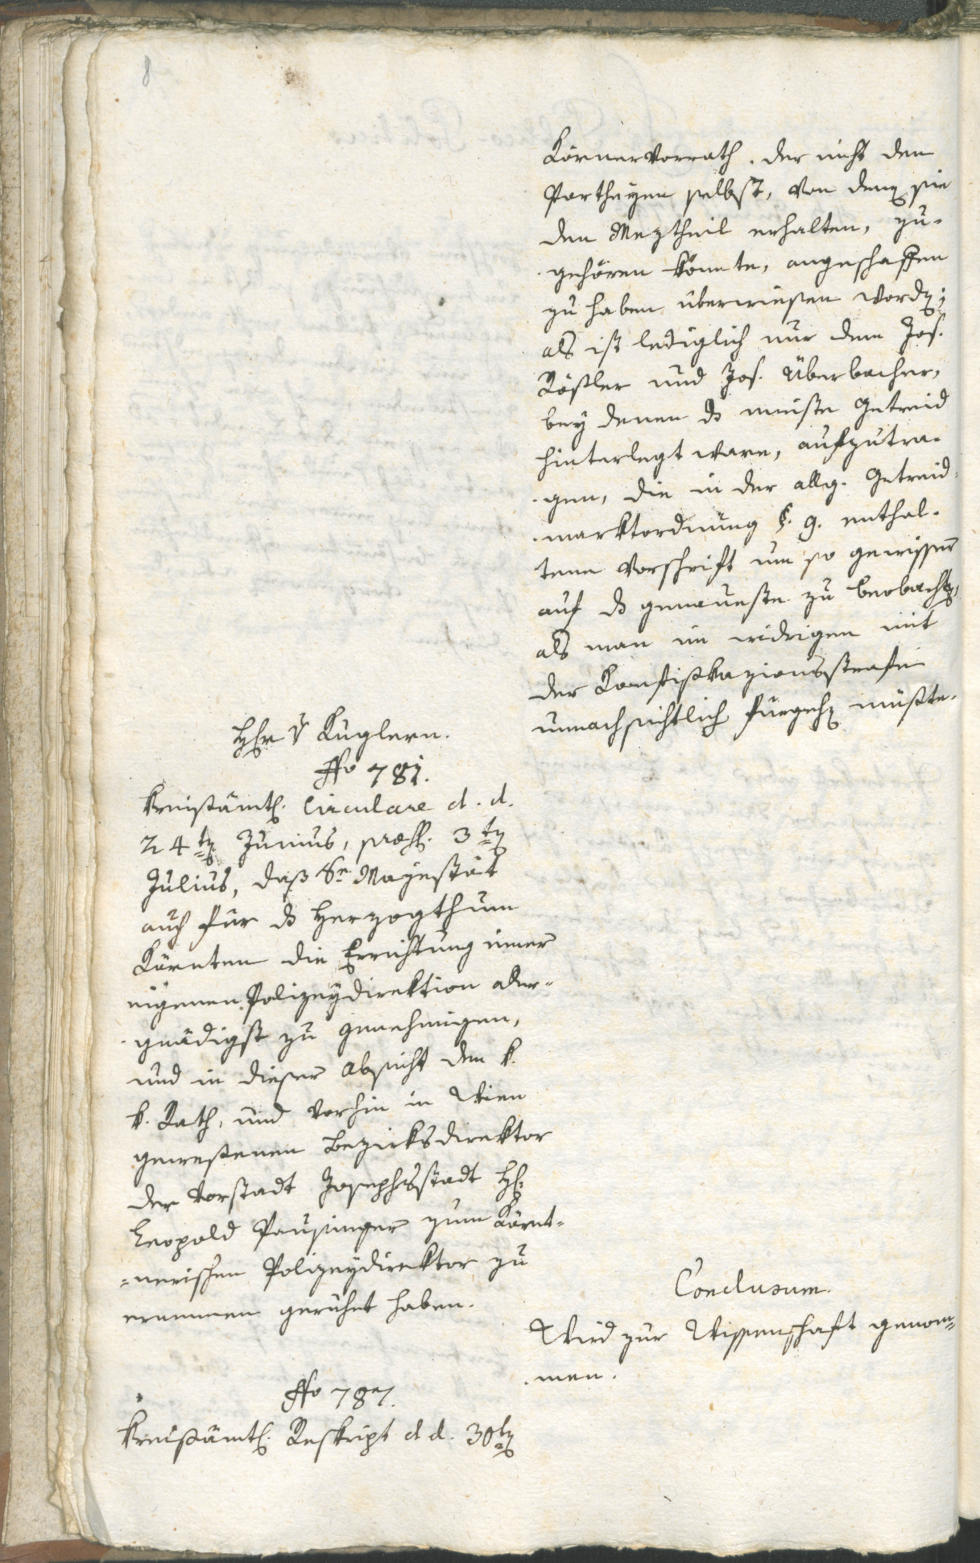 8
Körnervorrath. der nicht den
Partheyen selbst, von denen sie
den Meztheil erhalten, zu-
gehören könnte, angeschaffen
zu haben überwiesen worden;
als ist lediglich nur dem Jos.
Rößler und Jos. Überbacher,
bey denen ds meiste Getreid
hinterlegt ware, aufzutra-
gen, die in der allg. Getreid-
marktordnung §. 9. enthal-
tene Vorschrift um so gewisser
auf ds genaueste zu beobachten,
als man im widrigen mit
der Confiskazionsstrafe
unnachsichtlich fürgehen müßte.
Hr v Kuglern.
No 781.
Kreisämtl. Circulare d. d.
24ten Junius, praes. 3ten
Julius, daß Se Majestät
auch für ds Herzogthum
Kärnten die Errichtung einer
eigenen Polizeydirektion aller-
gnädigst zu genehmigen,
und in dieser Absicht den k.
k. Rath, und vorhin in Wien
gewesenen Bezirksdirektor
der Vorstadt Josephsstadt H.
Leopold Pausinger zum Kärnt-
nerischen Polizeydirektor zu
ernennen geruhet haben.
Conclusum.
Wird zur Wissenschaft genom-
men.
No 787.
Kreisämtl. Reskript d d. 30ten